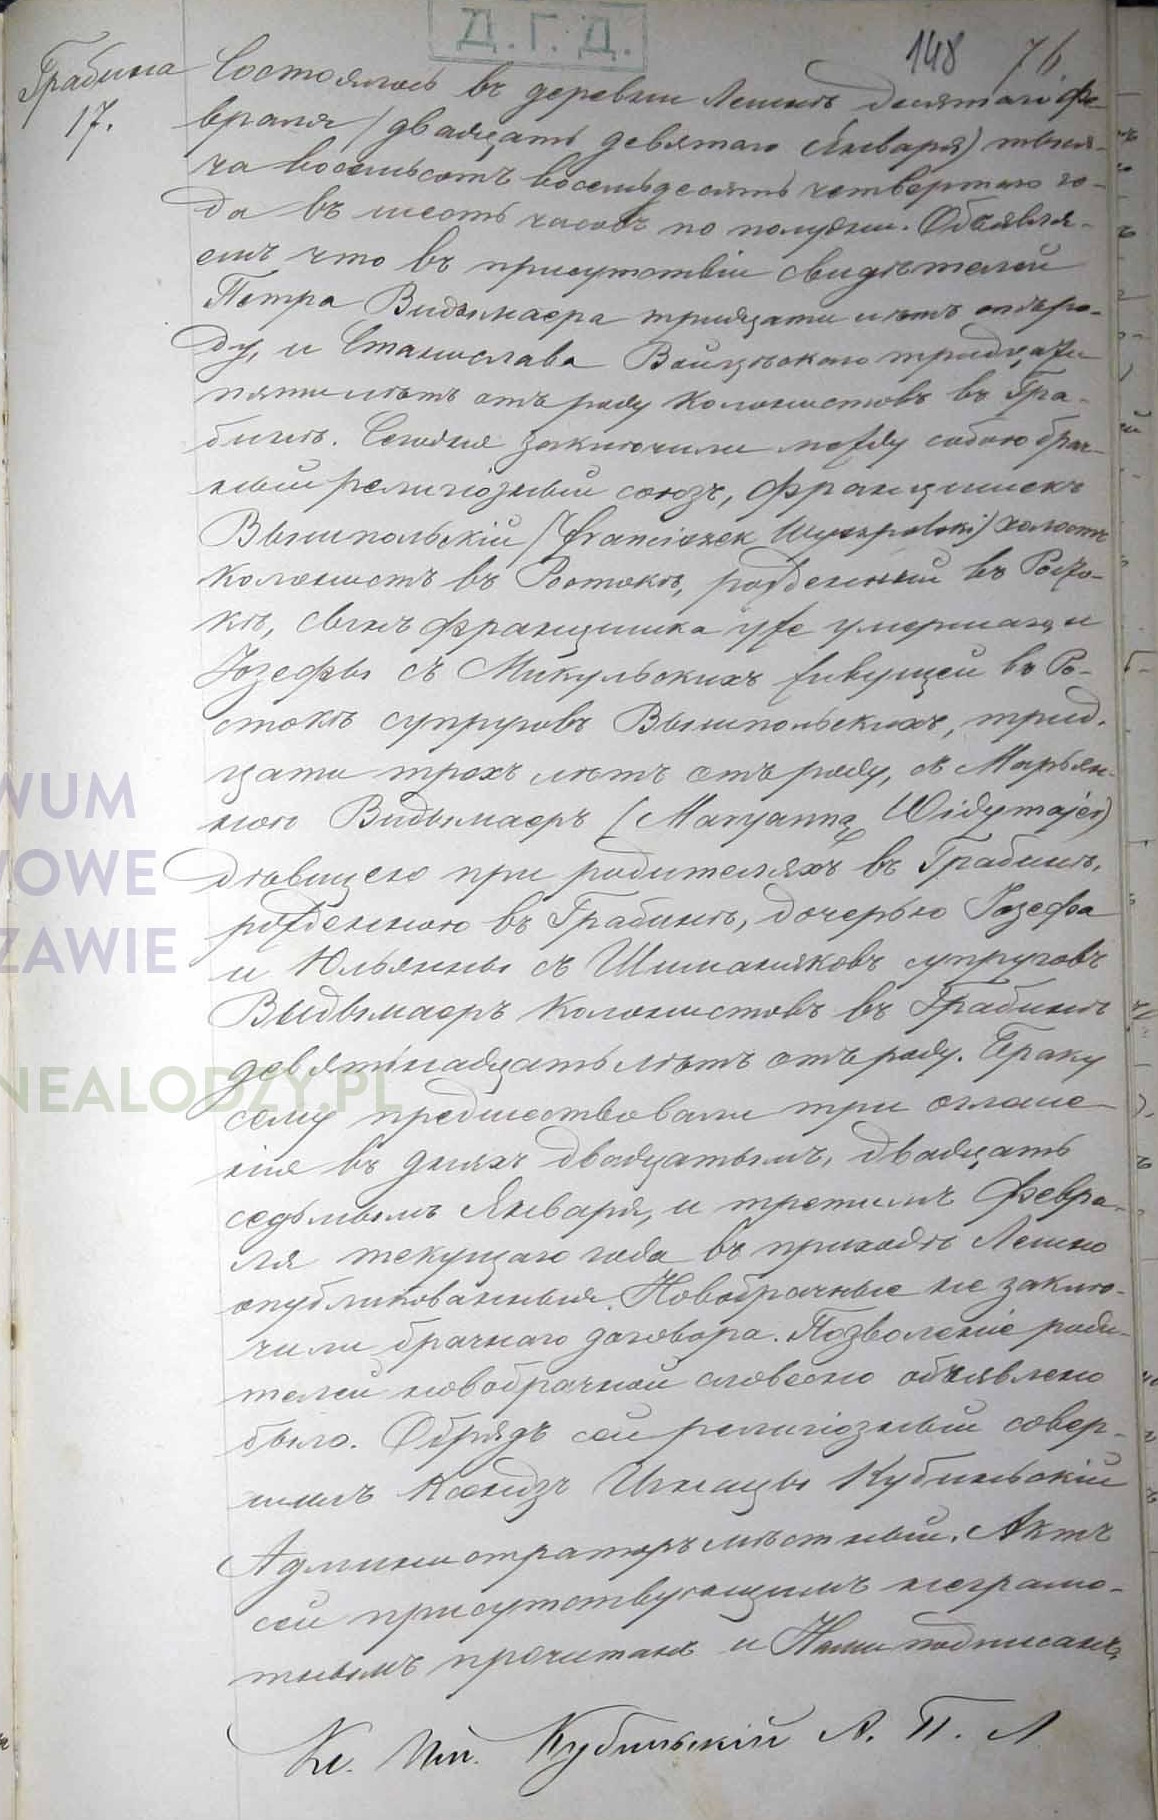 Д. Г. Д.
148 76
Грабина
17.
Состоялось въ деревни Лешнѣ десятаго Фе-
враля (двадцать девятаго Января) тыся-
ча восемьсотъ восемьдесятъ четвертаго го-
да въ шесть часовъ по полудни. Объявля-
емъ что въ присутствіи свидѣтелей
Петра Видымаера тридцати лѣтъ отъ ро-
ду, и Станислава Войцѣскаго тридцати
пяти лѣтъ отъ роду колонистовъ въ Гра-
бинѣ. Сегодня заключили между собою брач-
ный религіозный союзъ, Францишекъ
Вышпольскій (Franciszek Wyszpolski) холостъ
колонистъ въ Ростокѣ, рожденный въ Росто-
кѣ, сынъ Францишка уже умершаго и
Іозефы съ Микульскихъ живущей въ Ро-
стокѣ супруговъ Вышпольскихъ, трид-
цати трохъ лѣтъ отъ роду, съ Марьян-
ною Видымаеръ (Maryanną Widymajer)
дѣвицею при родителяхъ въ Грабинѣ,
рожденною въ Грабинѣ, дочерью Іозефа
и Юльянны съ Шиманяковъ супруговъ
Видымаеръ колонистовъ въ Грабинѣ
девятьнадцать лѣтъ отъ роду. Браку
сему предшествовали три оглаше-
нія въ дняхъ двадцатымъ, двадцать
седьмымъ Января, и третимъ Февра-
ля текущаго года въ приходѣ Лешно
опубликованныя. Новобрачные не заклю-
чили брачнаго договора. Позволеніе роди-
телей новобрачной словесно объявлено
было. Обрядъ сей религіозный совер-
шилъ Ксендзъ Игнацы Кубильскій
Администраторъ мѣстный. Актъ
сей присутствующимъ неграмо-
тнымъ прочитанъ и Нами подписанъ
Кс. Иг. Кубильскій А. П. Л
WUM
WOWE
ZAWIE
NEALODZY.PL